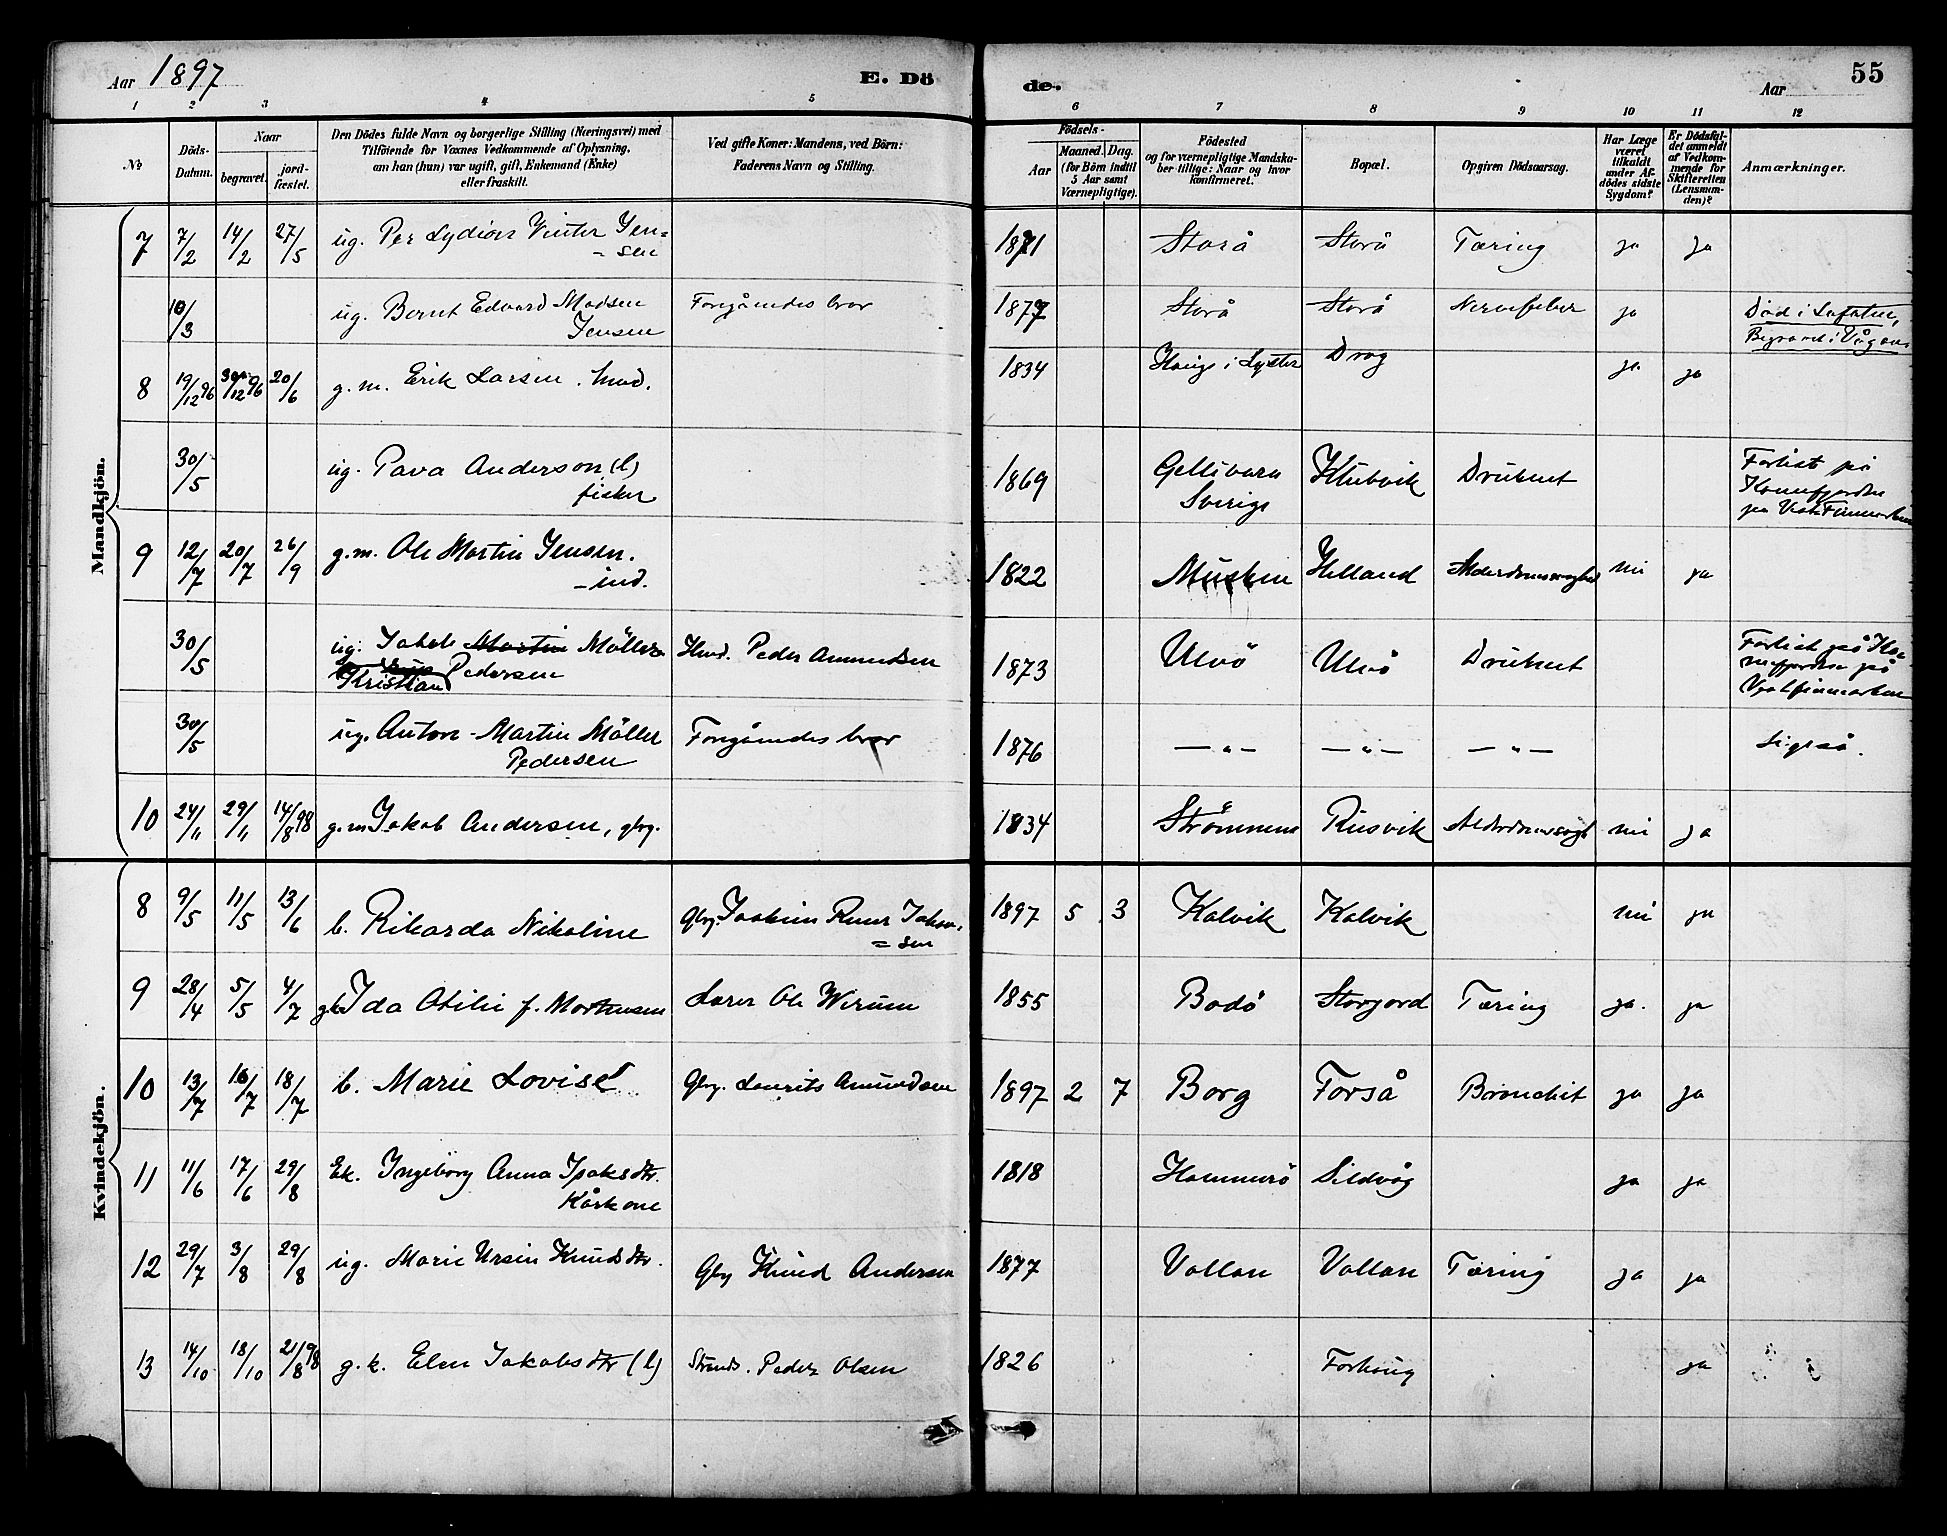 Aar 1897 E. Döde. Aar 55
1 2 3 4 5 6 7 8 9 10 11 12
No
Döds-Datum.
Naar
begravet.
jordfæstet.
Den Dödes fulde Navn og borgerlige Stilling (Næringsvei) med
Tilföiende for Voxnes Vedkommende af Oplysning,
om han (hun) var ugift, gift, Enkemand (Enke)
eller fraskilt.
Ved gifte Koner: Mandens, ved Börn:
Faderens Navn og Stilling.
Födsels-
Aar
Maaned. Dag.
(for Börn indtil
5 Aar samt
Værnepligtige).
Födested
og for værnepligtige Mandskaber tillige: Naar og hvor
konfirmeret.
Bopæl.
Opgiven Dödsaarsag.
Har Læge
været
tilkaldt
under Afdödes sidste
Sygdom?
Er Dödsfaldet anmeldt
af Vedkommende for
Skifteretten
(Lensmanden)?
Anmærkninger.
Mandkjön.
7 7/2 14/2 27/5 ug. Per Lydion Winter Jen= 1871 Storå Storå Tæring ja ja
= sen
10/3 ug. Bernt Edvard Madsen Foregåendes bror 1877 Storå Storå Nervefeber ja Död i Lofoten,
Jensen Begravet i Vågan
8 19/12 96 30/12 96 20/6 g. m. Erik Larsen. hmd. 1834 Haugi i Lyster Drag ja ja
30/5 ug. Pava Anderson (l) 1869 Gellivara Klubvik Druknet Forlist på
fisker Sverige
på Vestfinnmarken
9 12/7 20/7 26/9 g.m. Ole Martin Jensen. 1822 Musken Helland Alderdomssvaghed nei ja
- ind.
30/5 ug. Jakob Martin Möller Hmd. Peder Amundsen 1873 Ulvö Ulvö Druknet Forlist på
Kristian Pedersen
Vestfinmarken
30/5 ug. Anton Martin Möller Foregåendes bror 1876 — " — — " — — " — Ligeså.
Pedersen
10 24/11 29/11 14/8 98 g.m Jakob Andersen, gbr. 1834 Strömmen Rusvik nei ja
Kvindekjön.
8 9/5 11/5 13/6 b. Rikarda Nikoline 1897 5 3 Kalvik Kalvik nei ja
= sen
9 28/4 5/5 4/7 gk Ida Otilie f. Mortensen Lærer Ole Wirum 1855 Bodö Storjord Tæring ja. ja
10 13/7 16/7 18/7 b. Marie Lovise Gbr. Laurits Amundsen 1897 2 7 Borg Forså Bronchit ja ja
11 11/6 17/6 29/8 Ek. Ingeborg Anna Isaksdtr. 1818 Hammerö Sildvåg ja ja
Kårkone
12 29/7 3/8 29/8 ug. Marie Ursin Knudsdtr. Gbr Knud Andersen 1877 Vollan Vollan Tæring ja ja
13 14/10 18/10 21/8 98 g. k. Elen Jakobsdtr (l) Strands. Peder Olsen 1826 Forhaug ja